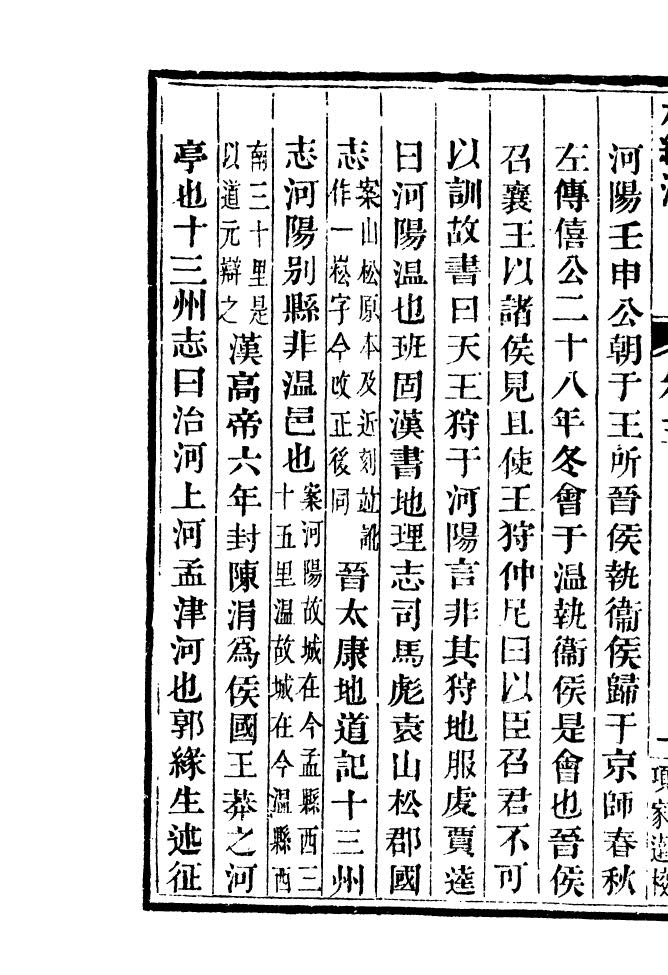 項家達校
河陽壬申公朝于王所晉侯執衞侯歸于京師春秋
左傳僖公二十八年冬會于温執衞侯是會也晉侯
召襄王以諸侯見且使王狩仲尼曰以臣召君不可
以訓故書曰天王狩于河陽言非其狩地服虔賈逵
曰河陽温也班固漢書地理志司馬彪袁山松郡國
志案山松原本及近刻竝訛作一崧字今改正後同晉太康地道記十三州
志河陽别縣非温邑也案河陽故城在今孟縣西三十五里温故城在今温縣西
南三十里是以道元辯之漢高帝六年封陳涓爲侯國王莽之河
亭也十三州志曰治河上河孟津河也郭緣生述征